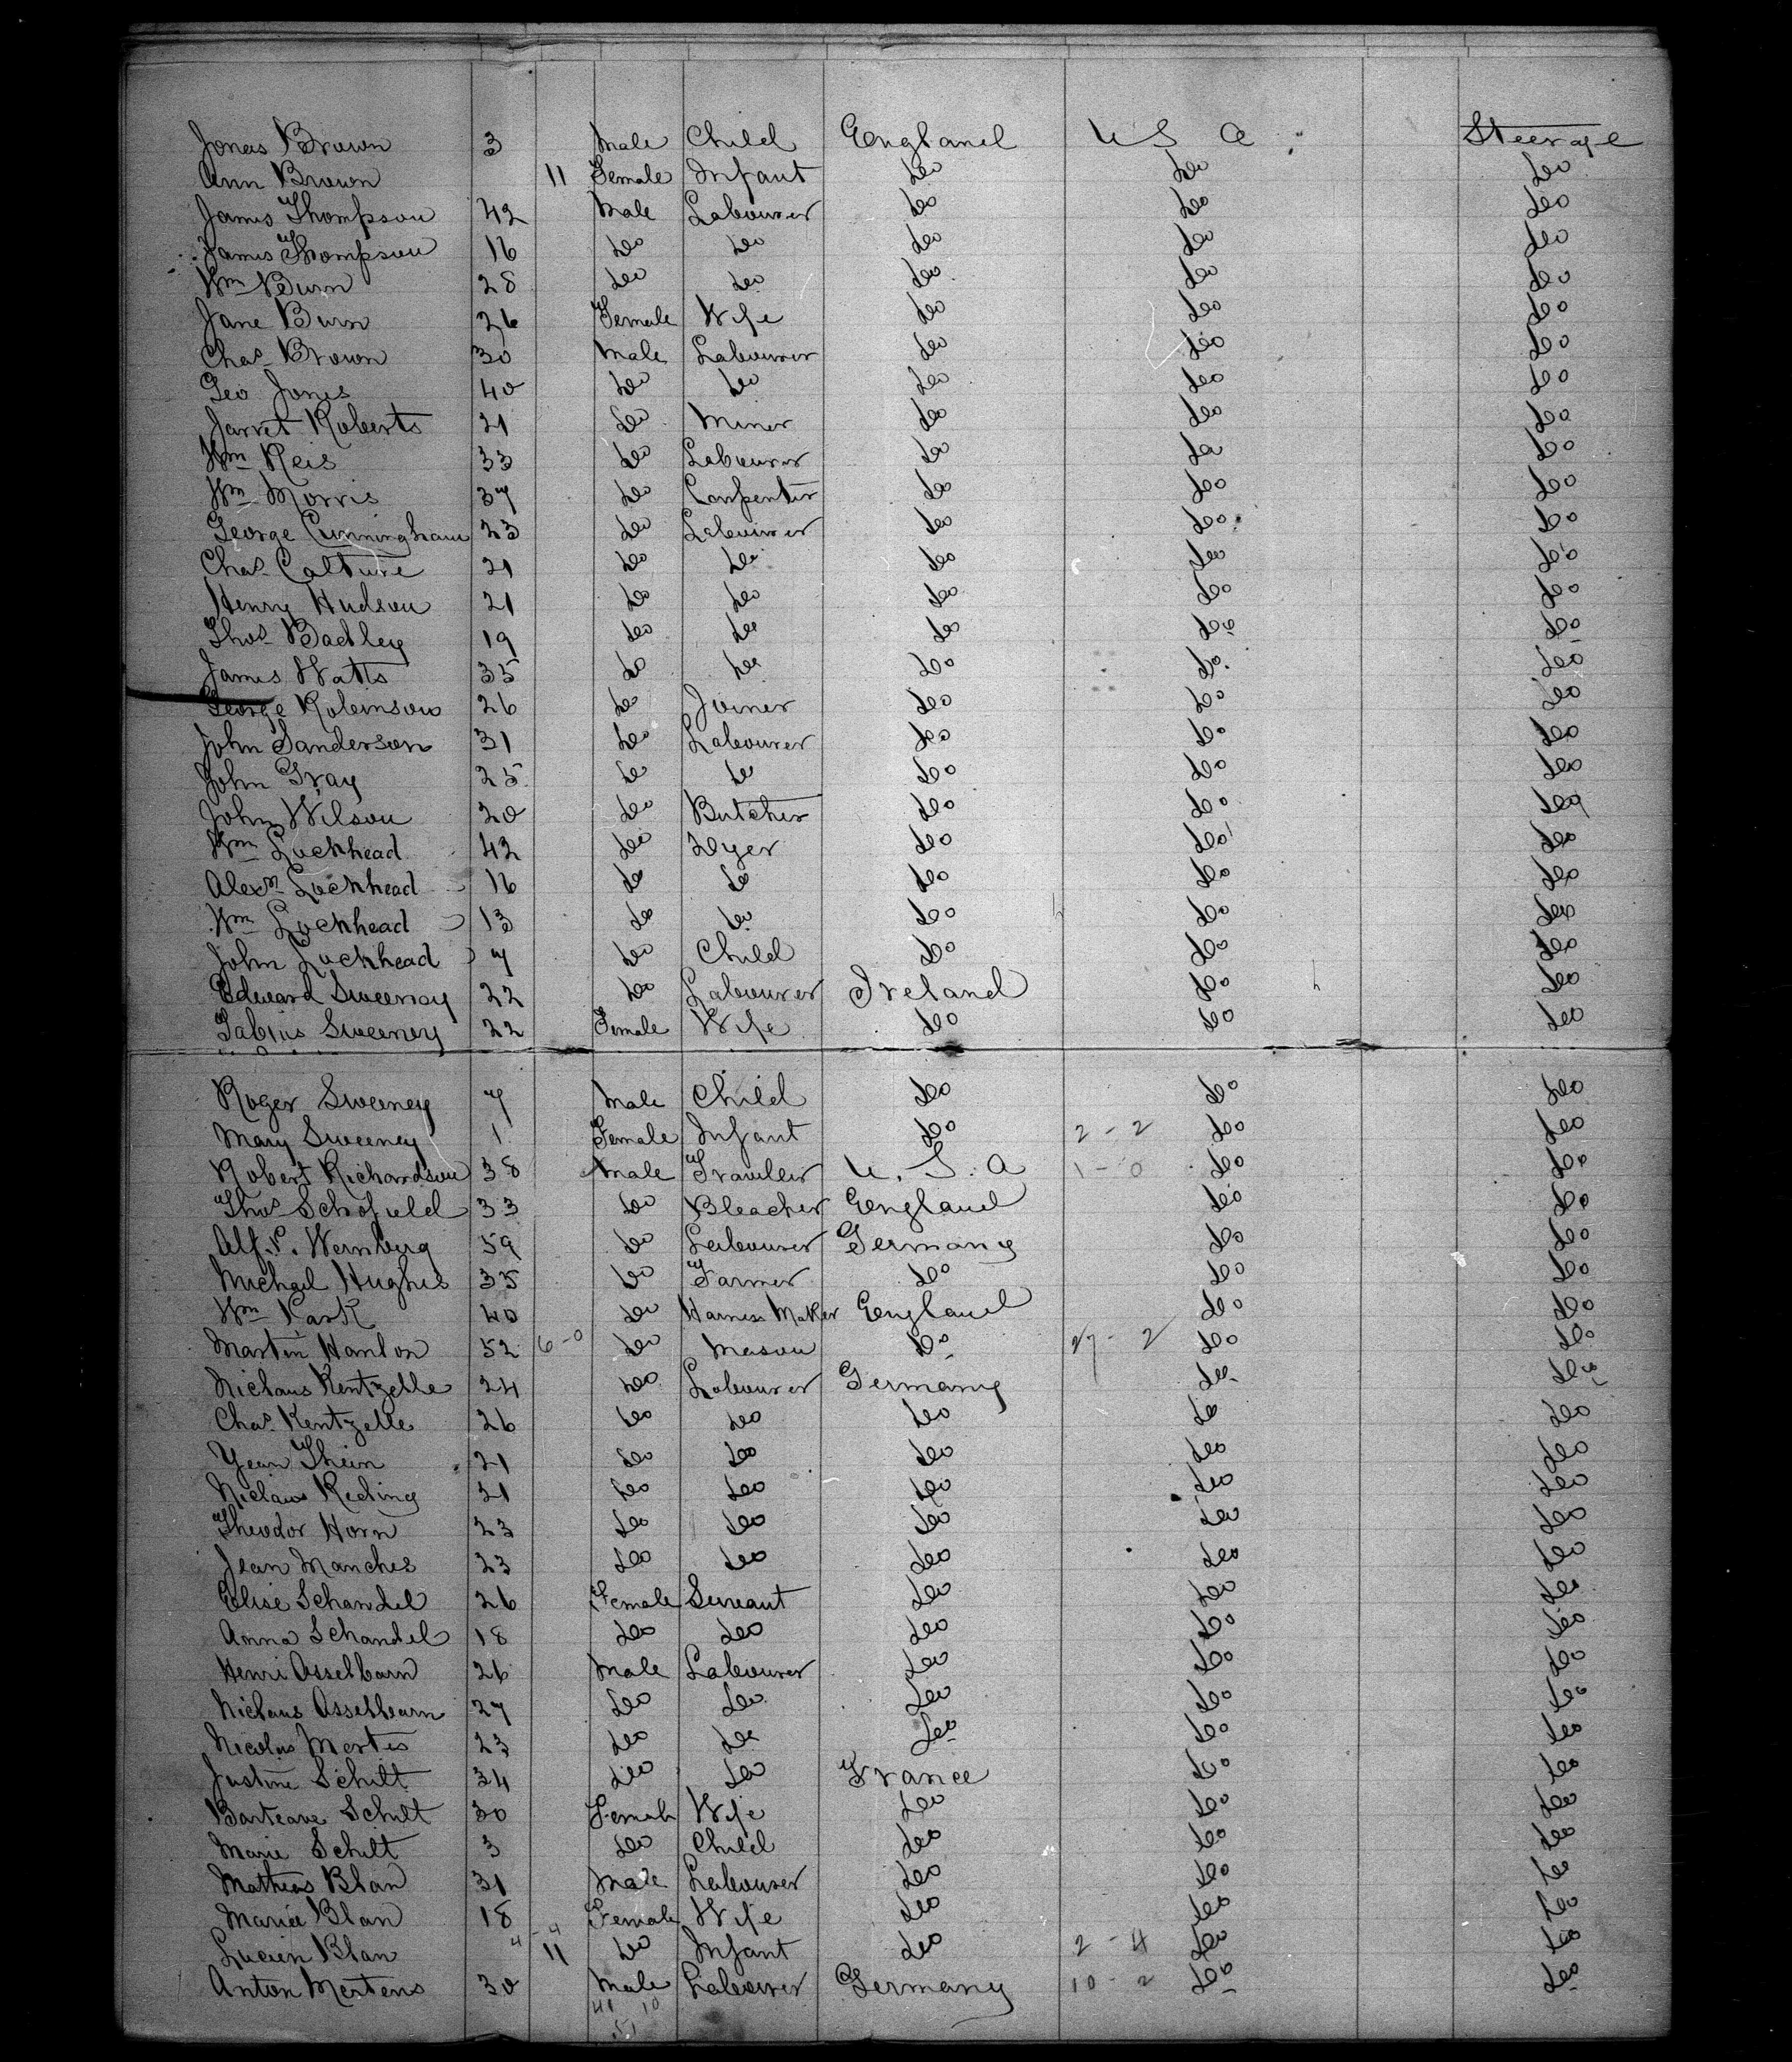 Jonas Brown 3 Male Child England U S A Steerage
Ann Brown 11 Female Infant Do Do Do
James Thompson 42 Male Labourer Do Do Do
James Thompson 16 Do Do Do Do Do
Wm Burn 28 Do Do Do Do Do
Jane Burn 26 Female Wife Do Do Do
Chas Brown 30 Male Labourer Do Do Do
Geo Jones 40 Do Do Do Do Do
Jarret Roberts 21 Do Miner Do Do Do
Wm Reis 33 Do Labourer Do Do Do
Wm Morris 37 Do Carpenter Do Do Do
George Cunningham 23 Do Labourer Do Do Do
Chas Calture 21 Do Do Do Do Do
Henry Hudson 21 Do Do Do Do Do
Thos Badley 19 Do Do Do Do Do
James Watts 35 Do Do Do Do Do
George Robinson 26 Do Joiner Do Do Do
John Sanderson 31 Do Labourer Do Do Do
John Gray 25 Do Do Do Do Do
John Wilson 20 Do Butcher Do Do Do
Wm Lockhead 42 Do Dyer Do Do Do
Alexr Lockhead 16 Do Do Do Do Do
Wm Lockhead 13 Do Do Do Do Do
John Lockhead 7 Do Child Do Do Do
Edward Sweeney 22 Do Labourer Ireland Do Do
Sweeney 22 Female Wife Do Do Do
Roger Sweeney 7 Male Child Do Do Do
Mary Sweeney 1 Female Infant Do 2-2 Do Do
Robert Richardson 38 Male Traveller U. S. A 1-0 Do Do
Thos Schofield 33 Do Bleacher England Do Do
Alf. P. Wernberg 59 Do Labourer Germany Do Do
Michael Hughes 35 Do Farmer Do Do Do
Wm Park 40 Do Harness Maker England Do Do
Martin Hanlon 52 6-0 Do Mason Do 27-2 Do Do
Niclaus Kentzelle 24 Do Labourer Germany Do Do
Chas Kentzelle 26 Do Do Do Do Do
Yean Thein 21 Do Do Do Do Do
Niclaus Reding 31 Do Do Do Do Do
Theodor Horn 23 Do Do Do Do Do
Jean Manches 23 Do Do Do Do Do
Elise Schandel 26 Female Servant Do Do Do
Anna Schandel 18 Do Do Do Do Do
Henri Asselbarn 26 Male Labourer Do Do Do
Niclaus Asselbarn 27 Do Do Do Do Do
Nicolas Mertes 23 Do Do Do Do Do
Justine Schilt 34 Do Do France Do Do
Schilt 30 Female Wife Do Do Do
Marie Schilt 3 Do Child Do Do Do
Mathias Blan 31 Male Labourer Do Do Do
Mariee Blan 18 Female Wife Do Do Do
Lucien Blan 4-4 11 Do Infant Do 2-4 Do Do
Anton Mertens 30 Male Labourer Germany 10-2 Do Do
41 10
51